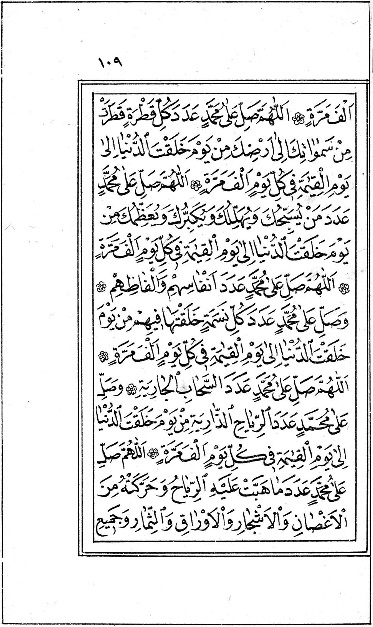 ١٠٩
اَلْفَ مَرَّةٍ ۞ اَللّٰهُمَّ صَلِّ عَلٰى مُحَمَّدٍ عَدَدَ كُلِّ قَطْرَةٍ قَطَرَتْ
مِنْ سَمٰوَاتِكَ اِلٰى اَرْضِكَ مِنْ يَوْمَ خَلَقْتَ الدُّنْيَا اِلٰى
يَوْمِ الْقِيٰمَةِ فِى كُلِّ يَوْمٍ اَلْفَ مَرَّةٍ ۞ اَللّٰهُمَّ صَلِّ عَلٰى مُحَمَّدٍ
عَدَدَ مَنْ يُسَبِّحُكَ وَيُهَلِّلُكَ وَيُكَبِّرُكَ وَيُعَظِّمُكَ مِنْ
يَوْمَ خَلَقْتَ الدُّنْيَا اِلٰى يَوْمِ الْقِيٰمَةِ فِى كُلِّ يَوْمٍ اَلْفَ مَرَّةٍ
۞ اَللّٰهُمَّ صَلِّ عَلٰى مُحَمَّدٍ عَدَدَ اَنْفَاسِهِمْ وَاَلْفَاظِهِمْ ۞
وَصَلِّ عَلٰى مُحَمَّدٍ عَدَدَ كُلِّ نَسَمَةٍ خَلَقْتَهَا فِيهِمْ مِنْ يَوْمَ
خَلَقْتَ الدُّنْيَا اِلٰى يَوْمِ الْقِيٰمَةِ فِى كُلِّ يَوْمٍ اَلْفَ مَرَّةٍ ۞
اَللّٰهُمَّ صَلِّ عَلٰى مُحَمَّدٍ عَدَدَ السَّحَابِ الْجَارِيَةِ ۞ وَصَلِّ
عَلٰى مُحَمَّدٍ عَدَدَ الرِّيَاحِ الذَّارِيَةِ مِنْ يَوْمَ خَلَقْتَ الدُّنْيَا
اِلٰى يَوْمِ الْقِيٰمَةِ فِى كُلِّ يَوْمٍ اَلْفَ مَرَّةٍ ۞ اَللّٰهُمَّ صَلِّ
عَلٰى مُحَمَّدٍ عَدَدَ مَا هَبَّتْ عَلَيْهِ الرِّيَاحُ وَحَرَّكَتْهُ مِنَ
الْاَغْصَانِ وَالْاَشْجَارِ وَالْاَوْرَاقِ وَالثِّمَارِ وَجَمِيعِ